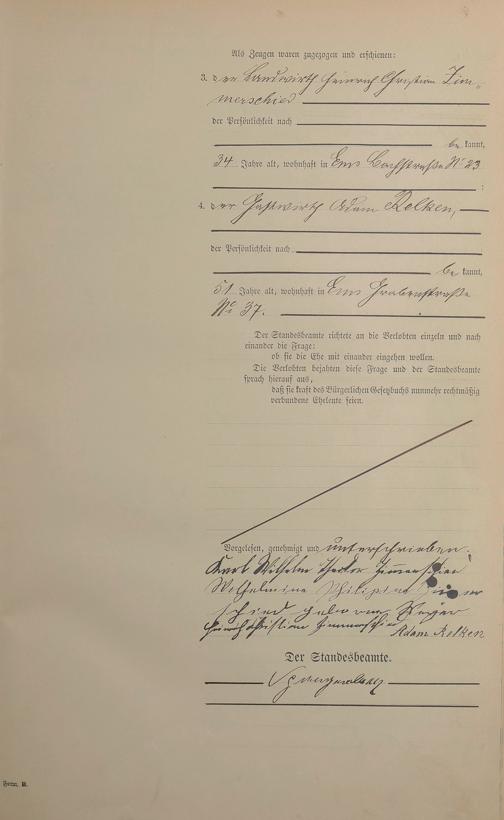 Als Zeugen waren zugezogen und erschienen:
3. der Landwirth Heinrich Christian Zim-
merschied
der Persönlichkeit nach
be kannt,
34 Jahre alt, wohnhaft in Ems Bachstraße No 23
;
4. der Gastwirth Adam Relken,
der Persönlichkeit nach
be kannt,
51 Jahre alt, wohnhaft in Ems Grabenstraße
No 37.
Der Standesbeamte richtete an die Verlobten einzeln und nach
einander die Frage:
ob sie die Ehe mit einander eingehen wollen.
Die Verlobten bejahten diese Frage und der Standesbeamte
sprach hierauf aus,
daß sie kraft des Bürgerlichen Gesetzbuchs nunmehr rechtmäßig
verbundene Eheleute seien.
Vorgelesen, genehmigt und unterschrieben.
Karl Wilhelm Theodor Zimmerschied
Wilhelmine Philipine Zimmer
schied geborene
Heinrich Christian Zimmerschied
Adam Relken
Der Standesbeamte.
Form. B.